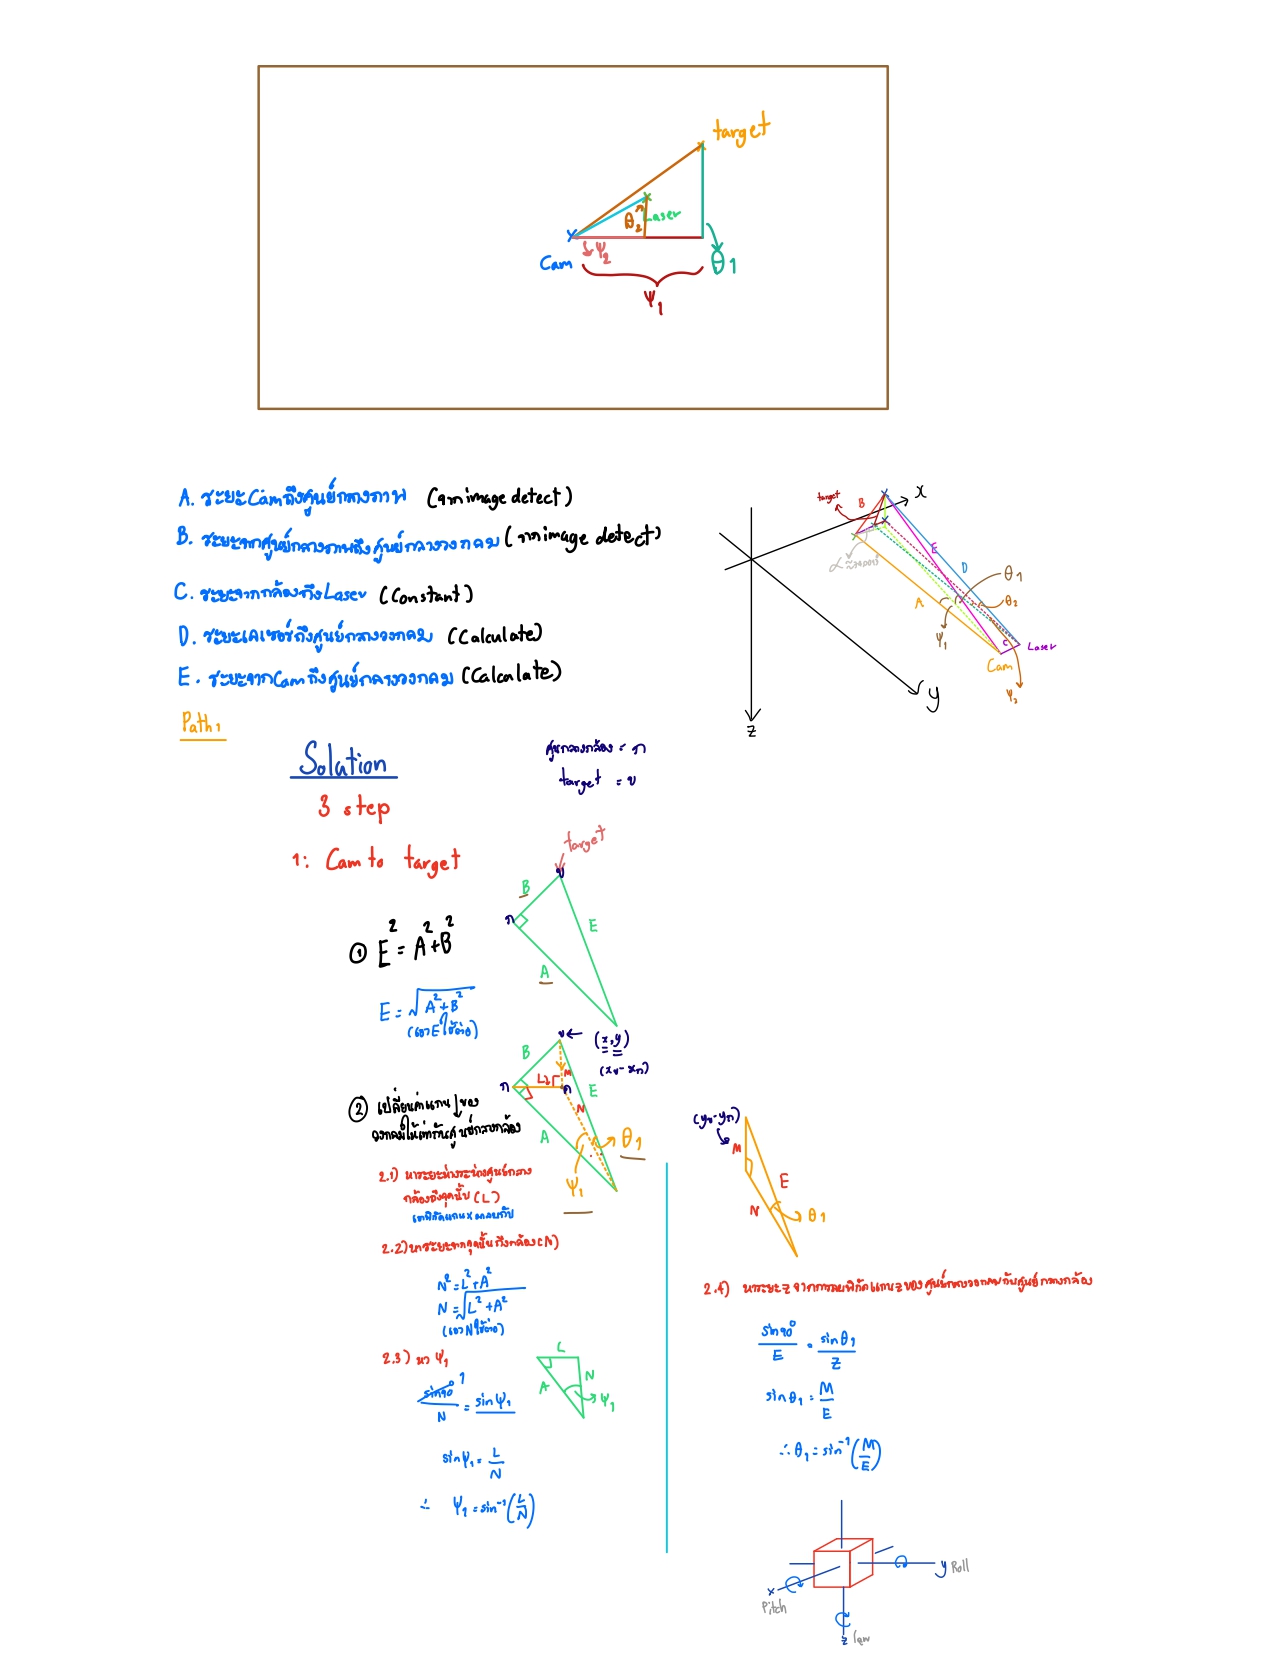 target
θ2
Laser
ψ2
Cam
θ1
ψ1
A. ระยะCamถึงศูนย์กลางภาพ (จาก image detect)
B. ระยะจากศูนย์กลางภาพถึงศูนย์กลางวงกลม (จาก image detect)
C. ระยะจากกล้องถึงLaser (Constant)
D. ระยะเลเซอร์ถึงศูนย์กลางวงกลม (Calculate)
E. ระยะจากCamถึงศูนย์กลางวงกลม (Calculate)
target
B
x
E
D
α
θ1
A
θ2
ψ1
C
Laser
Cam
ψ2
y
z
Path1
Solution
3 step
1: Cam to target
ศูนกลางกล้อง = ก
target = ข
target
ข
B
ก
E
A
① E² = A²+B²
E = √A²+B²
(เอาEใช้ต่อ)
ข
(x,y)
(xข-xก)
B
M
L
ก
ค
E
N
A
θ1
ψ1
② เปลี่ยนค่าแกน y ของ
วงกลมให้เท่ากับศูนย์กลางกล้อง
2.1) หาระยะห่างระหว่างศูนย์กลาง
กล้องถึงจุดนั้น (L)
เอาพิกัดแกน x มาลบกับ
2.2) หาระยะจากจุดนั้นถึงกล้อง(N)
N² = L²+A²
N = √L²+A²
(เอาNใช้ต่อ)
2.3) หา ψ1
sin90° 1
N
= sin ψ1
L
A
N
ψ1
sin ψ1 = L/N
∴ ψ1 = sin⁻¹(L/N)
(yข-yก)
M
E
N
θ1
2.4) หาระยะ z จากการลบพิกัดแกน z ของศูนย์กลางวงกลมกับศูนย์กลางกล้อง
sin90°/E = sinθ1/Z
sinθ1 = M/E
∴ θ1 = sin⁻¹(M/E)
y Roll
x
Pitch
z Yaw